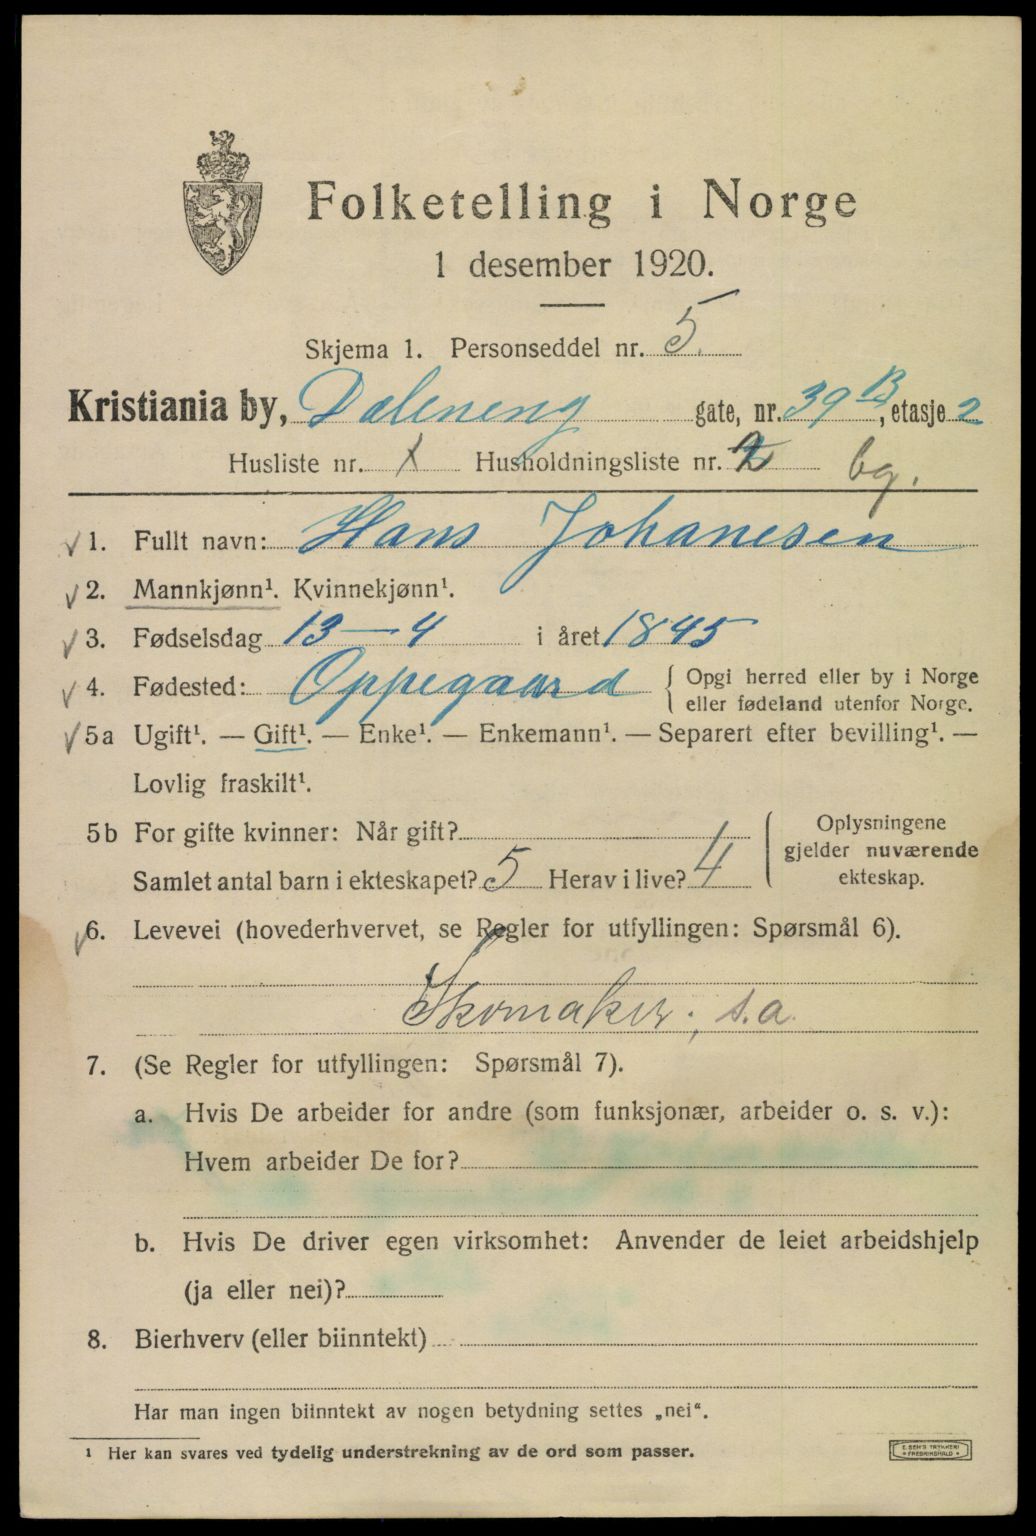 Folketelling i Norge
1 desember 1920.
Skjema 1. Personseddel nr. 5.
Kristiania by, Daleneng gate, nr. 39 B, etasje 2
Husliste nr. 1 Husholdningsliste nr. 2 bg.
1. Fullt navn: Hans Johanesen
2. Mannkjønn¹. Kvinnekjønn¹.
3. Fødselsdag 13 — 4 i året 1845
4. Fødested: Oppegaard { Opgi herred eller by i Norge
eller fødeland utenfor Norge.
5a Ugift¹. — Gift¹. — Enke¹. — Enkemann¹. — Separert efter bevilling¹. —
Lovlig fraskilt¹.
5b For gifte kvinner: Når gift?
Samlet antal barn i ekteskapet? 5 Herav i live? 4
Oplysningene
gjelder nuværende
ekteskap.
6. Levevei (hovederhvervet, se Regler for utfyllingen: Spørsmål 6).
Skomaker, s.a.
7. (Se Regler for utfyllingen: Spørsmål 7).
a. Hvis De arbeider for andre (som funksjonær, arbeider o. s. v.):
Hvem arbeider De for?
b. Hvis De driver egen virksomhet: Anvender de leiet arbeidshjelp
(ja eller nei)?
8. Bierhverv (eller biinntekt)
Har man ingen biinntekt av nogen betydning settes „nei“.
¹ Her kan svares ved tydelig understrekning av de ord som passer.
E. SEM'S TRYKKERI
FREDRIKSHALD